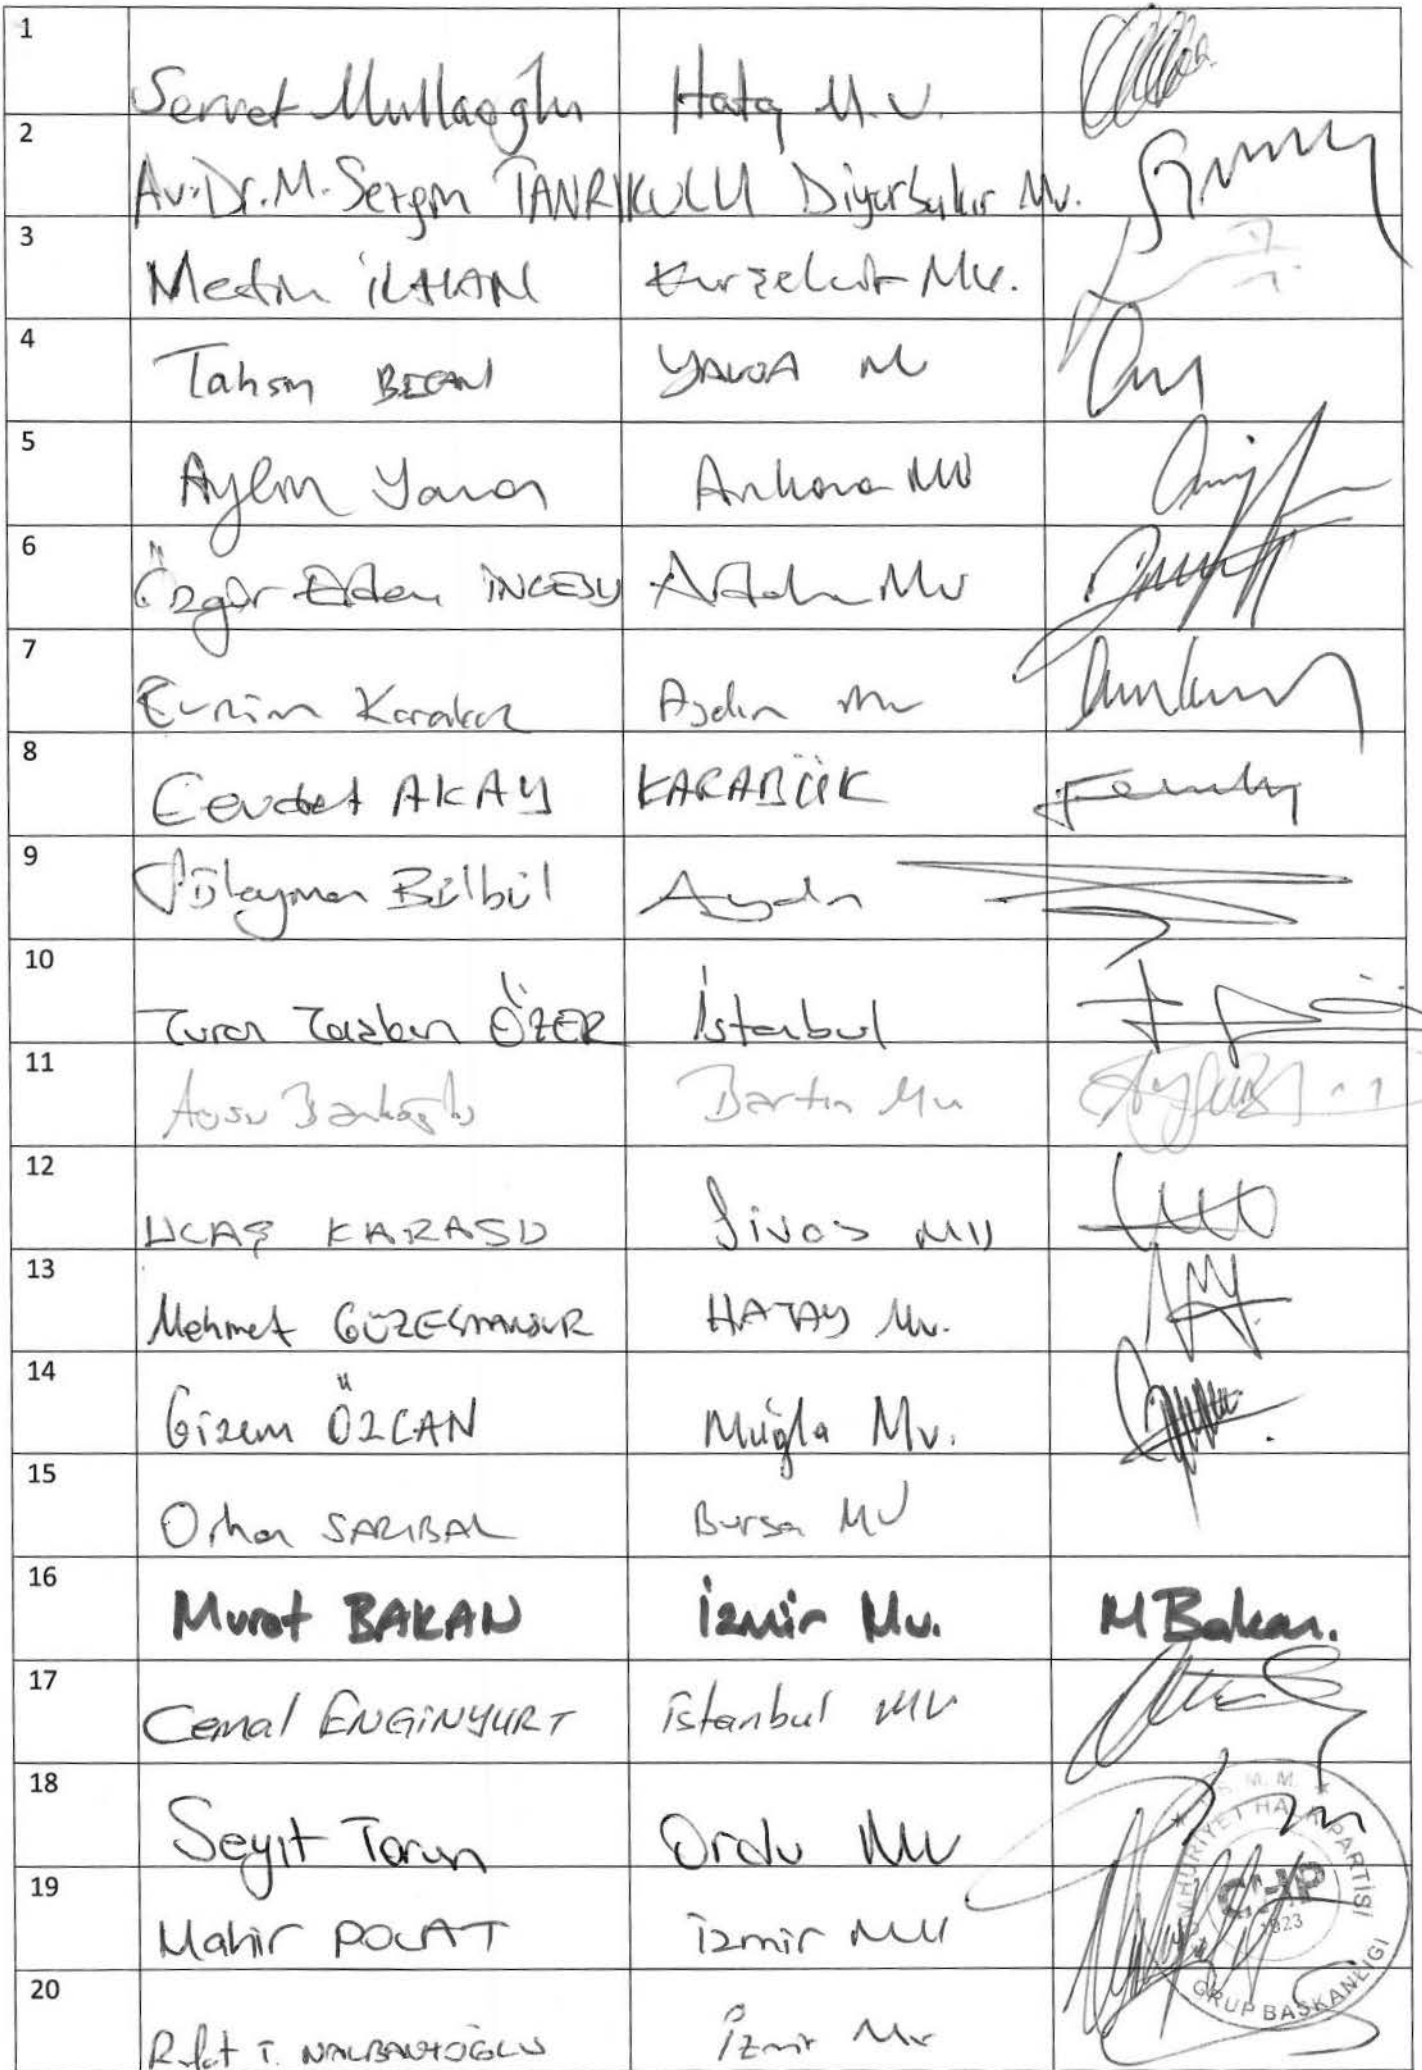 1
Servet Mullaoğlu Hatay M.V.
2
Av. Dr. M. Sezgin TANRIKULU Diyarbakır Mv.
3
Metin İLHAN Kırşehir Mv.
4
Tahsin BECAN YALOVA M
5
Aylin Yaman Ankara MV
6
Özgür Erdem İNCESU Ardahan Mv
7
Evrim Karakoz Aydın mv
8
Cevdet AKAY KARABÜK
9
Süleyman Bülbül Aydın
10
Turan Taşkın ÖZER İstanbul
11
Aysu Bankoğlu Bartın Mv
12
ULAŞ KARASU Sivas MV
13
Mehmet GÜZELMANSUR HATAY Mv.
14
Gizem ÖZCAN Muğla Mv.
15
Orhan SARIBAL Bursa MV
16
Murat BAKAN İzmir Mv. M Bakan.
17
Cemal ENGİNYURT İstanbul MV
18
Seyit Torun Ordu MV
19
Mahir POLAT İzmir MV
20
Rıfat T. NALBANTOĞLU İzmir Mv
T.B.M.M.
CUMHURİYET HALK PARTİSİ
CHP
1923
GRUP BAŞKANLIĞI